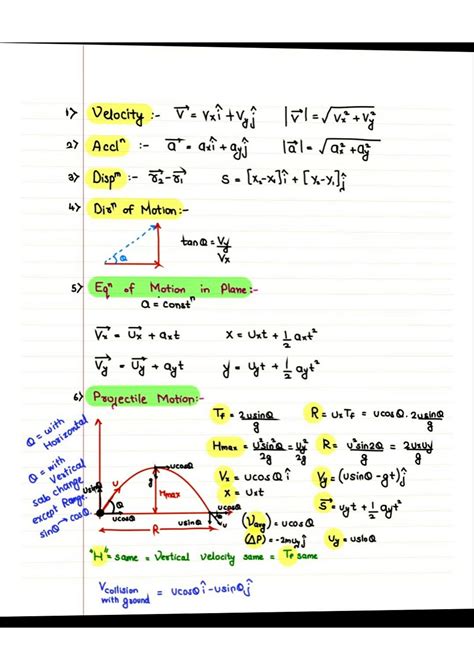 1) Velocity :- v⃗ = vₓî + v_yĵ |v⃗| = √(vₓ² + v_y²)
2) Acclⁿ :- a⃗ = aₓî + a_yĵ |a⃗| = √(aₓ² + a_y²)
3) Dispᵐ :- r⃗₂ - r⃗₁ S = [x₂-x₁]î + [y₂-y₁]ĵ
4) Dirⁿ of Motion:-
θ tanθ = v_y/vₓ
5) Eqⁿ of Motion in Plane:-
a = constⁿ
v⃗ₓ = u⃗ₓ + aₓt x = uₓt + ½ aₓt²
v⃗_y = u⃗_y + a_yt y = u_yt + ½ a_yt²
6) Projectile Motion:-
θ = with Horizontal
θ = with Vertical
sab change
except Range.
sinθ → cosθ.
T_f = 2usinθ/g R = uₓT_f = ucosθ. 2usinθ/g
Hmax = u²sin²θ/2g = u_y²/2g R = u²sin2θ/g = 2uₓu_y/g
vₓ = ucosθ î v_y = (usinθ - gt)ĵ
x = uₓt S⃗ = u_yt + ½ a_yt²
(v_avg) = ucosθ
(ΔP) = -2mu_yĵ u_y = us
usinθ u θ Hmax g ucosθ
ucosθ usinθ ucosθ u
R
"H" = same = Vertical velocity same = T_f same
v collision with ground = ucosθî - usinθĵ